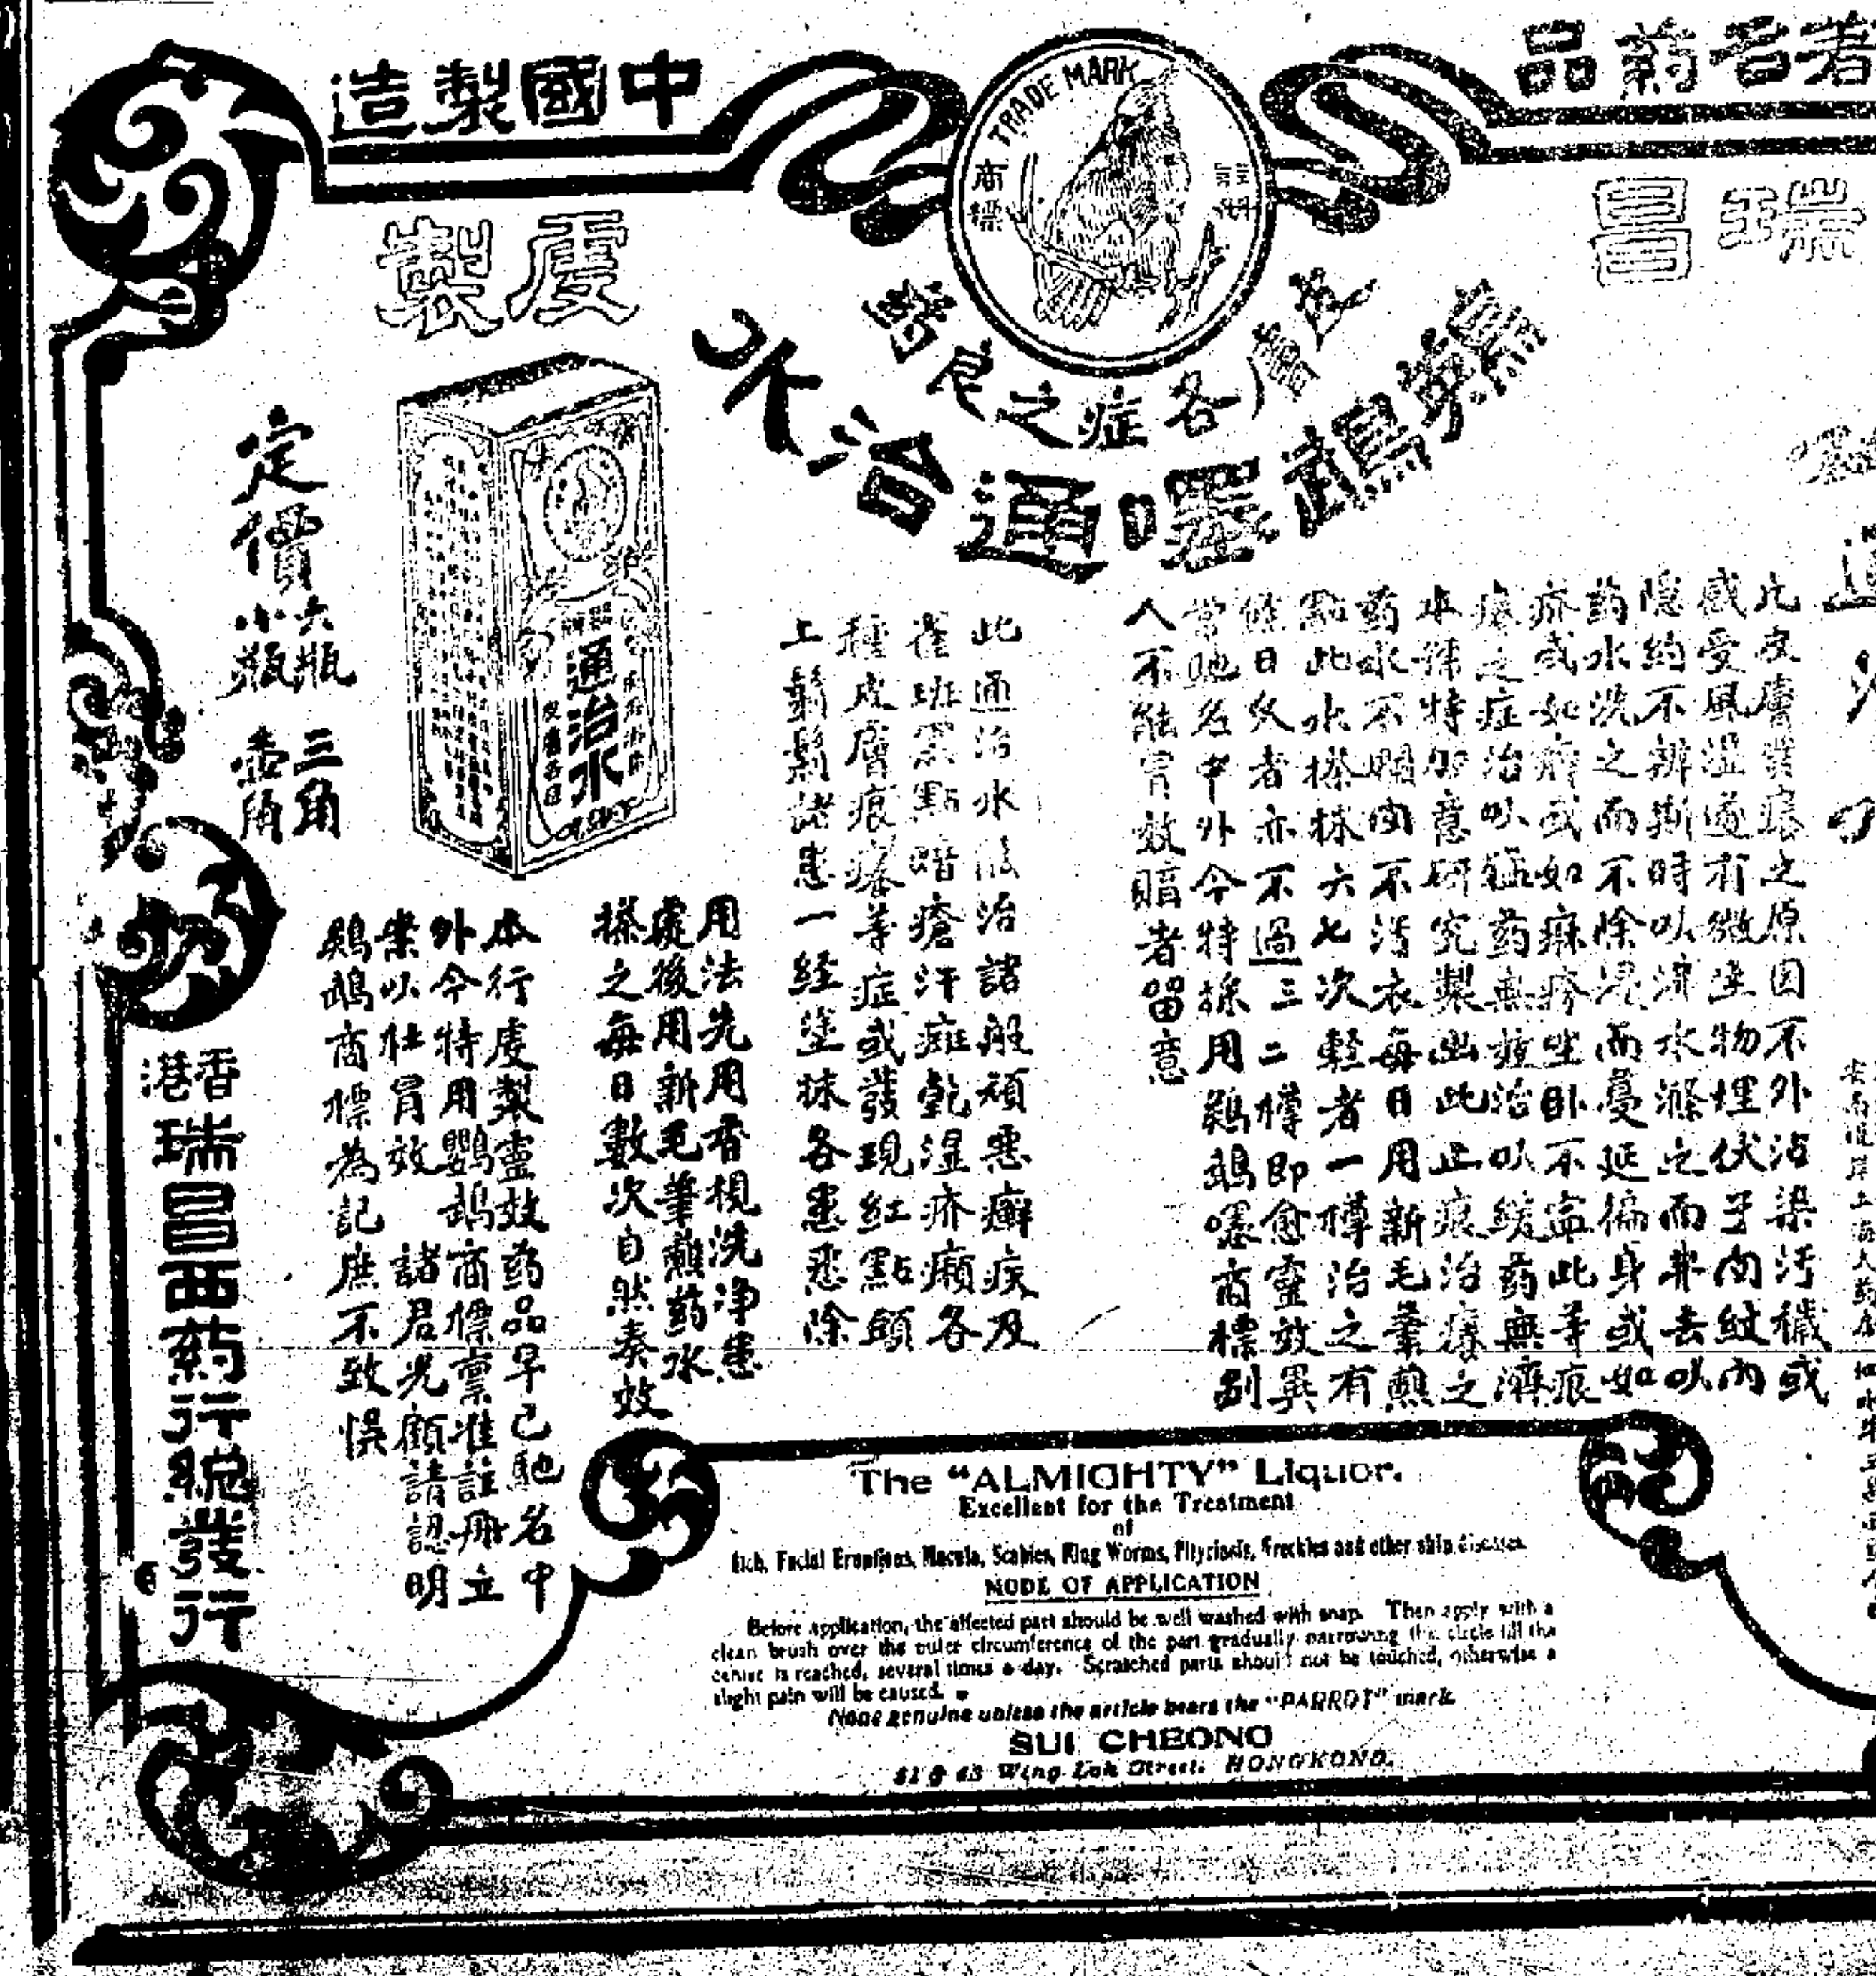 著名葯品
中國製造
TRADE MARK
商標
瑞昌
虔製
皮膚各症之良
鸚鵡嘜通治水
通治水
此皮膚
感受風濕
隱約不辨斯時以清水滌之而弗去以
葯水洗之而不除浸而蔓延徧身或如
疥或如癬或如痳疹坐卧不寍此等痕
癢之症治以猛葯無從治以緩葯無濟
本號特加意研究製出此止痕治療之
葯水不咽肉不污衣每日用新毛筆蘸
點此水搽抹六七次輕者一樽治之有
餘日久者亦不過三二樽即愈靈效異
常馳名中外今特採用鷄鵡嘜商標別
人不能冒效賜者留意
此通治水能治諸般頑惡癬疾及
雀班黑點暗瘡汗癍乾濕疥癩各
種皮膚痕癢等症或發現紅點頤
上鬍鬚諸患一経塗抹各患悉除
用法先用香梘洗净患
處後用新毛筆蘸葯水
搽之每日數次自然奏效
本行虔製靈效葯品早已馳名中
外今特用鸚鵡商標禀准註冊立
案以杜冐效 諸君光顧請認明
鷄鵡商標為記庶不致悞
定價 大瓶 三角
小瓶 壹角
香港瑞昌西葯行總發行
The "ALMIGHTY" Liquor.
Excellent for the Treatment
of
Itch, Facial Eruptions, Macula, Scabies, Ring Worms, Pityriasis, Freckles and other skin diseases.
MODE OF APPLICATION
Before application, the affected part should be well washed with soap. Then apply with a
clean brush over the outer circumference of the part gradually narrowing the circle till the
centre is reached, several times a day. Scratched parts should not be touched, otherwise a
slight pain will be caused.
None genuine unless the article bears the "PARROT" mark
SUI CHEONG
Wing Lok Street. HONGKONG.